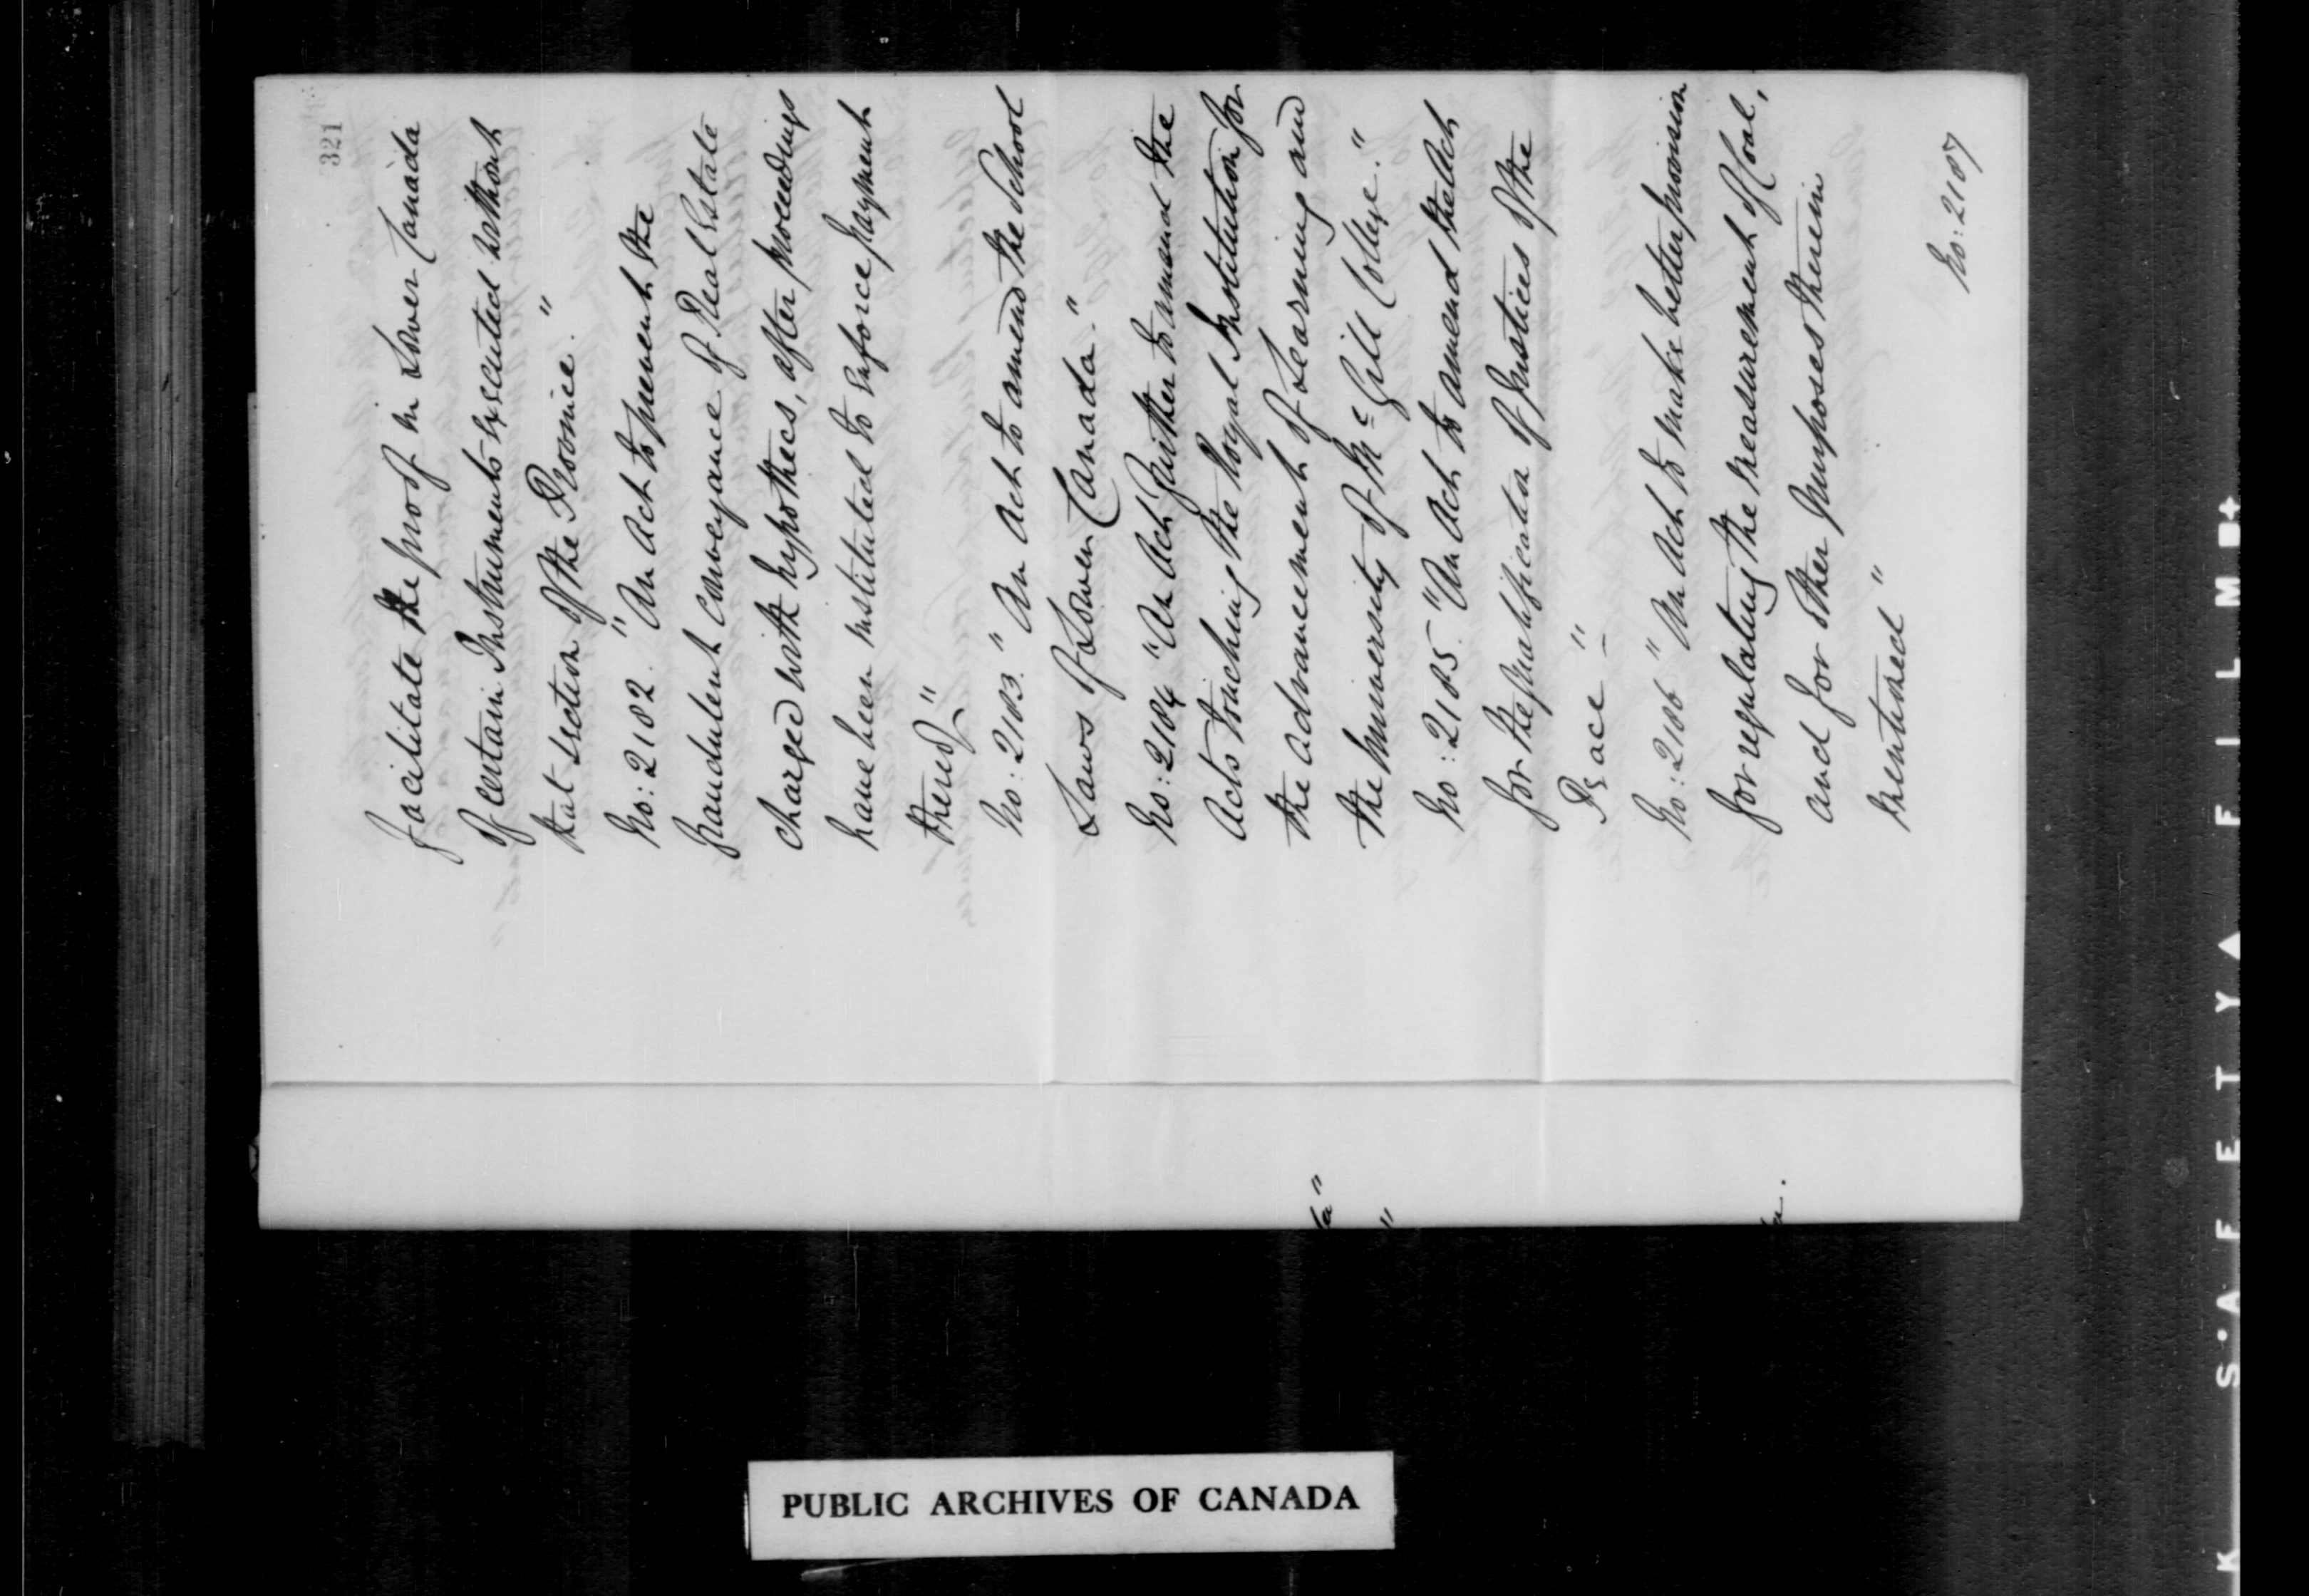 321
facilitate the proof in Lower Canada
of certain Instruments executed without
that section of the Province."
No: 2182. "An Act to prevent the
fraudulent conveyance of Real Estate
charged with hypothecs, after proceedings
have been instituted to enforce payment
thereof"
No: 2183. "An Act to amend the School
Laws of Lower Canada."
No: 2184 "An Act further to amend the
Acts touching the Royal Institution for
the advancement of Learning and
the University of McGill College."
No: 2185. "An Act to amend the Act
for the qualification of Justices of the
Peace"
No: 2186 "An Act to make better provision
for regulating the measurement of Coal,
and for other purposes therein
mentioned"
No: 2187
PUBLIC ARCHIVES OF CANADA
K S·A F E T Y ▲ F I L M